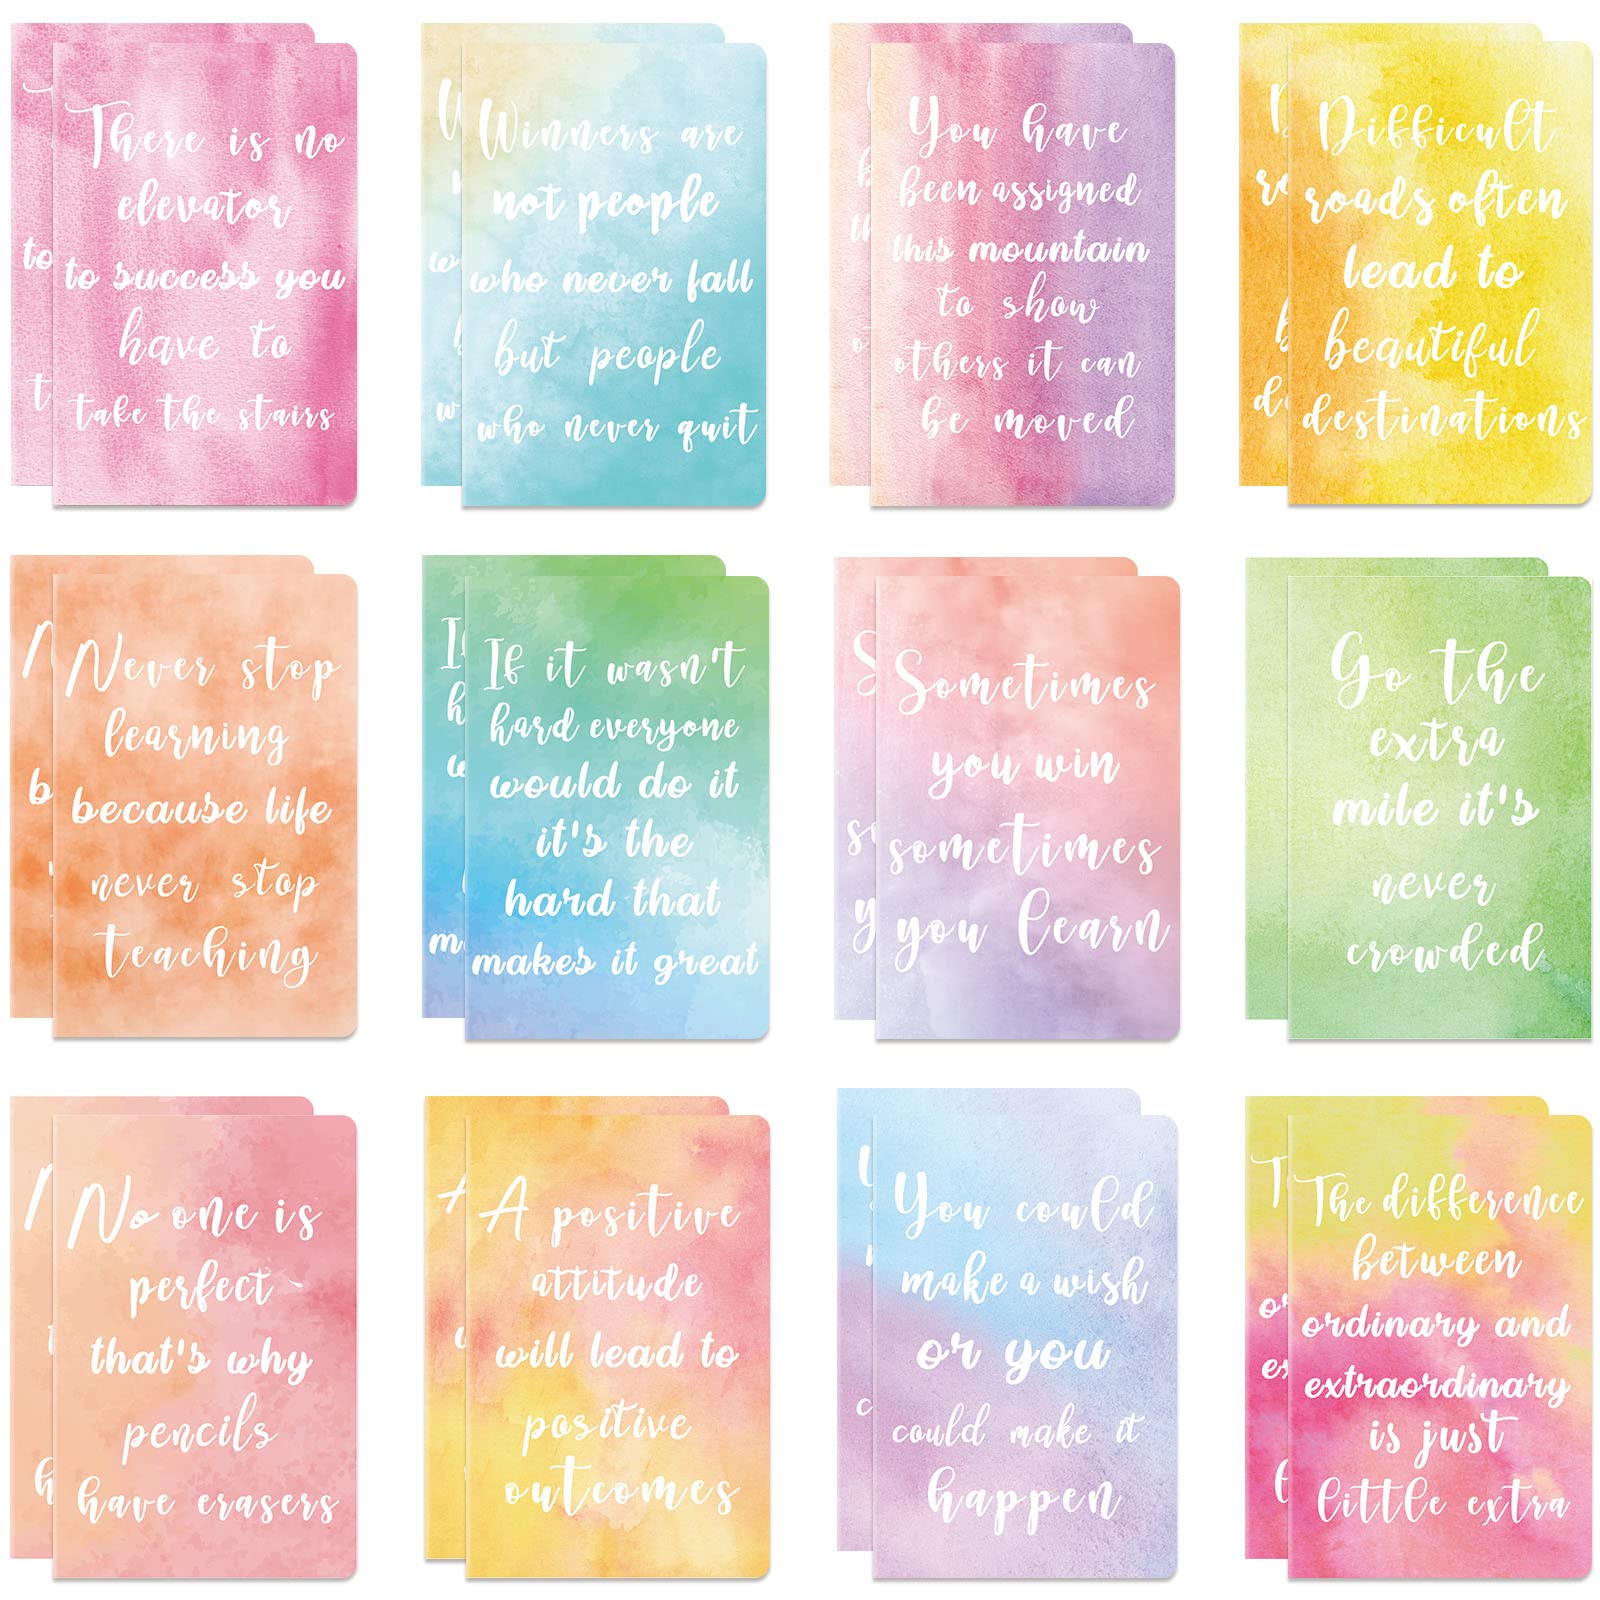 There is no
elevator
to success you
have to
take the stairs
Winners are
not people
who never fall
but people
who never quit
You have
been assigned
this mountain
to show
others it can
be moved
Difficult
roads often
lead to
beautiful
destinations
Never stop
learning
because life
never stop
teaching
If it wasn't
hard everyone
would do it
it's the
hard that
makes it great
Sometimes
you win
sometimes
you learn
Go the
extra
mile it's
never
crowded
No one is
perfect
that's why
pencils
have erasers
A positive
attitude
will lead to
positive
outcomes
You could
make a wish
or you
could make it
happen
The difference
between
ordinary and
extraordinary
is just
little extra